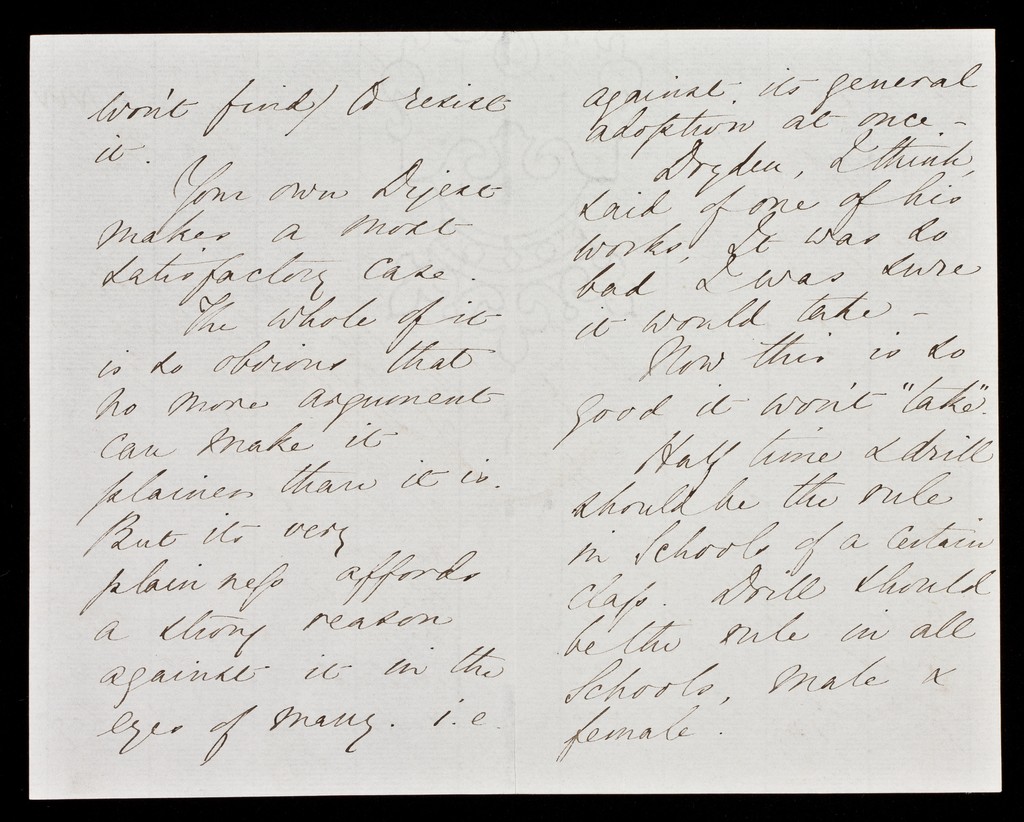 won't find) to resist
it.
Your own Digest
makes a most
satisfactory case.
The whole of it
is so obvious that
no more argument
can make it
plainer than it is.
But its very
plainness affords
a strong reason
against it in the
eyes of many. i.e.
against. its general
adoption at once. -
Dryden, I think,
said of one of his
works, It was so
bad I was sure
it would take -
Now this is so
good it won't "take".
Half time & drill
should be the rule
in Schools of a certain
class. Drill should
be the rule in all
Schools, male &
female.